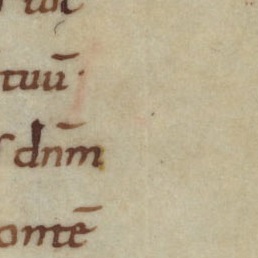 tuū·
dnm̄
omtē